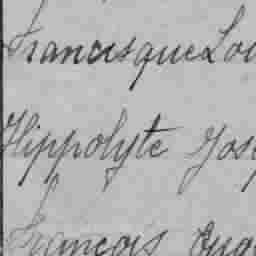 Francisque Lou
Hippolyte Jos
François Eug